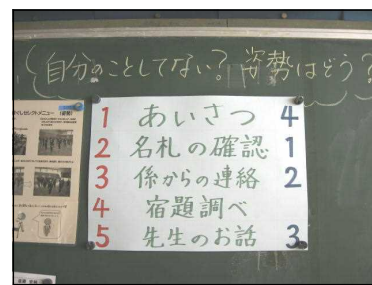 自分のことしてない?姿勢はどう?
1 あいさつ 4
2 名札の確認 1
3 係からの連絡 2
4 宿題調べ
5 先生のお話 3